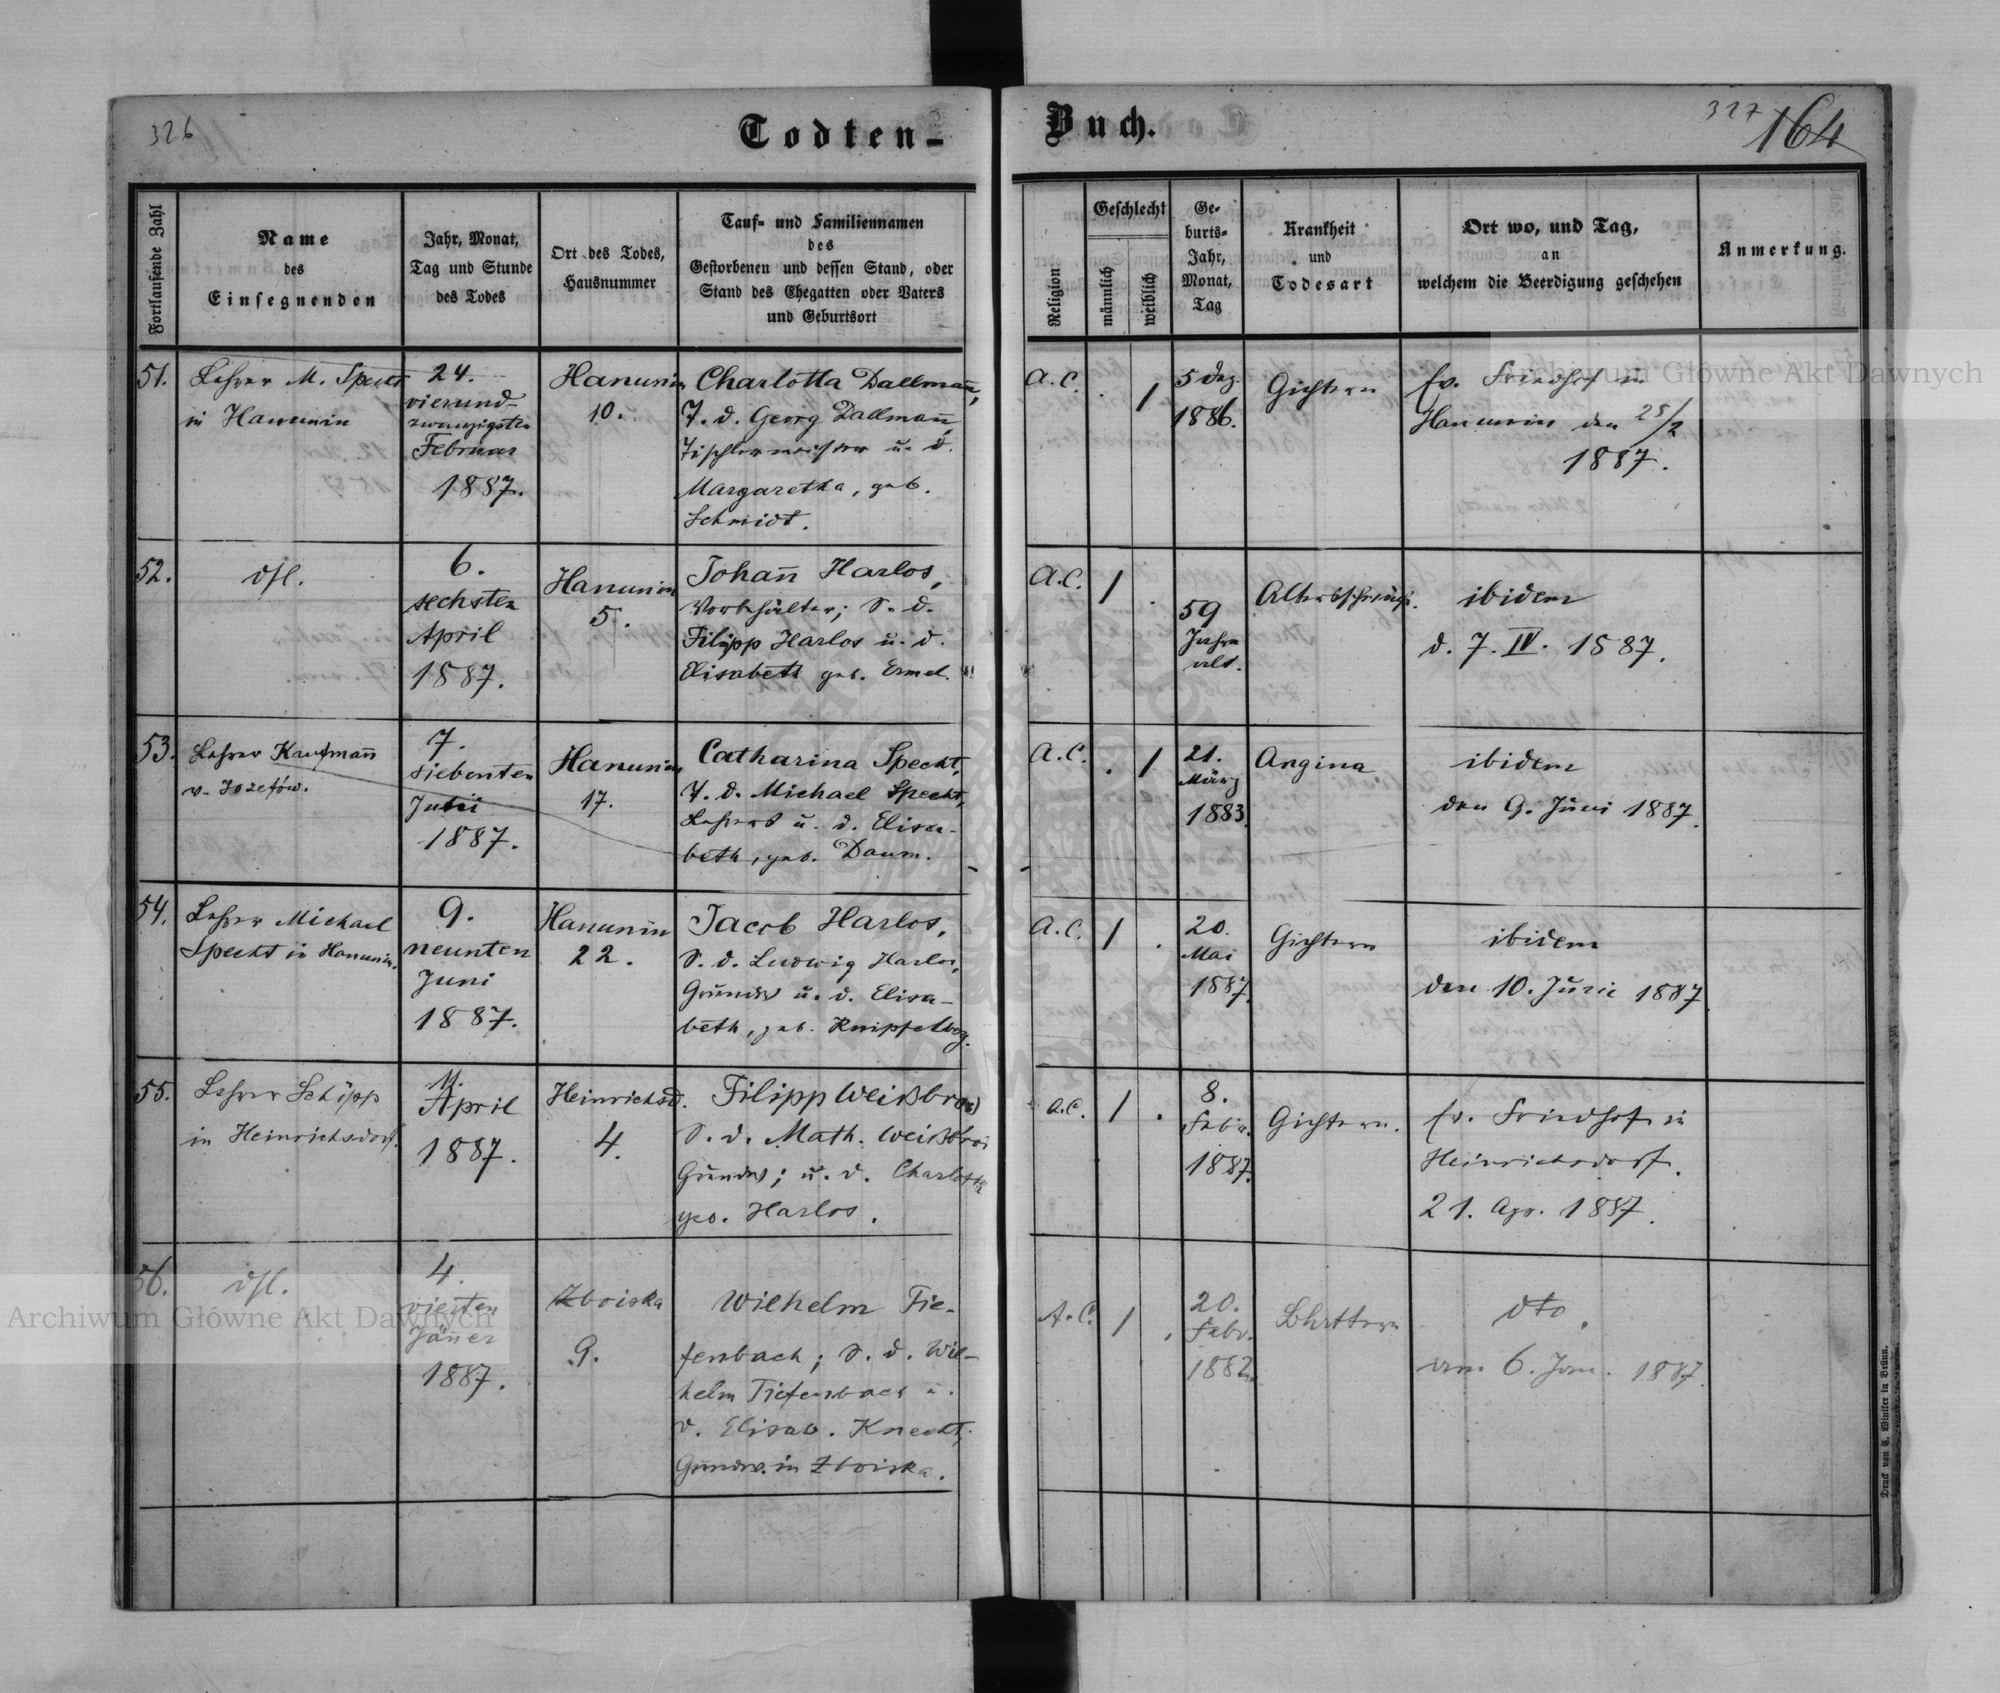 326
Todten-
Buch.
327
164
Fortlaufende Zahl
Name
des
Einsegnenden
Jahr, Monat,
Tag und Stunde
des Todes
Ort des Todes,
Hausnummer
Tauf- und Familiennamen
des
Gestorbenen und dessen Stand, oder
Stand des Ehegatten oder Vaters
und Geburtsort
Religion
Geschlecht
männlich
weiblich
Ge-
burts-
Jahr,
Monat,
Tag
Krankheit
und
Todesart
Ort wo, und Tag,
an
welchem die Beerdigung geschehen
Anmerkung.
51.
Lehrer M. Specht
in Hanunin
24.
vierund-
zwanzigsten
Februar
1887.
Hanunin
10.
Charlotta Dallmañ,
T. d. Georg Dallmañ,
Tischlermeister u. d.
Margaretha, geb.
Schmidt.
A.C.
. 1
5 Dez.
1886.
Gichtern
Ev. Friedhof in
Hanunin den 25/2
1887.
52.
dsl.
6.
sechsten
April
1887.
Hanunin
5.
Johañ Harlos,
Vorbehälter; S. d.
Filipp Harlos u. d.
Elisabeth geb. Ermel.
A.C.
1 .
59
Jahre
alt.
Altersschwäche.
ibidem
d. 7. IV. 1887.
53.
Lehrer Kaufmañ
v. Jozefów.
7.
siebenten
Juni
1887.
Hanunin
17.
Catharina Specht,
T. d. Michael Specht,
Lehrers u. d. Elisa-
beth, geb. Daum.
A.C.
. 1
21.
März
1883.
Angina
ibidem
den 9. Juni 1887.
54.
Lehrer Michael
Specht in Hanunin.
9.
neunten
Juni
1887.
Hanunin
22.
Jacob Harlos,
S. d. Ludwig Harlos,
Grundw u. d. Elisa-
beth, geb. Knipfelberg.
A.C.
1 .
20.
Mai
1887.
Gichtern
ibidem
den 10. Juni 1887
55.
Lehrer Schipp
in Heinrichsdorf.
11.
April
1887.
Heinrichsd.
4.
Filipp Weißbrod
S. d. Math. Weißbrod
Grundw; u. d. Charlotte
geb. Harlos.
A.C.
1 .
8.
Febr.
1887.
Gichtern.
Ev. Friedhof in
Heinrichsdorf.
21. Apr. 1887.
56.
dsl.
4.
vierten
Jäñer
1887.
Zboiska
9.
Wilhelm Tie-
fenbach; S. d. Wil-
helm Tiefenbach u.
d. Elisab. Knecht,
Grundw. in Zboiska.
A.C.
1 .
20.
Febr.
1882.
Blattern
dto.
am 6. Jän. 1887.
Druck von C. Winiker in Brünn.
Archiwum Główne Akt Dawnych
Archiwum Główne Akt Dawnych